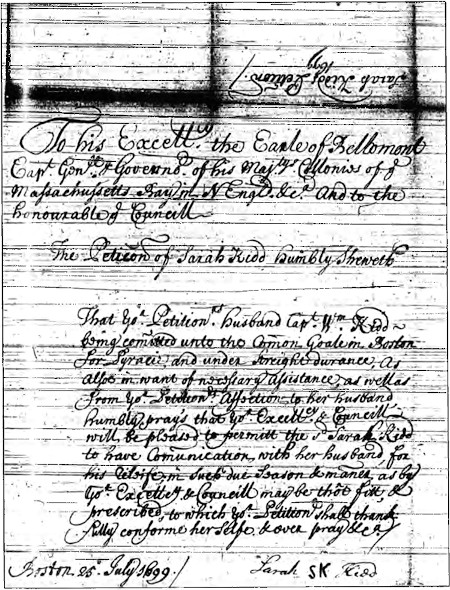 Sarah Kidds Petition
1699
To his Excell.cy the Earle of Bellomont
Capt. Gen.ll & Govern.r of his Maj.tys Collonies of y.e
Massachussetts Bay in N Engl.d &c.a And to the
honourable y.e Councill
The Peticon of Sarah Kidd Humbly Sheweth
That yo.r Petition.rs Husband Cap.t W.m Kidd
being comitted unto the Comon Goale in Boston
for Pyracie, and under Streight durance, As
Also in want of necessary Assistance, as well as
from yo.r Petition.rs Affection to her husband
humbly prays that yo.r Excell.cy & Councill
will be pleased to permitt the s.d Sarah Kidd
to have Comunication with her husband for
his reliefe, in such due Season & maner, as by
yo.r Excellcy & Councill may be thot fitt, &
prescribed, to which yo.r Petition.r shall thank
fully conforme her Selfe, & ever pray &c.a
Boston 25.o July 1699.
Sarah SK Kidd